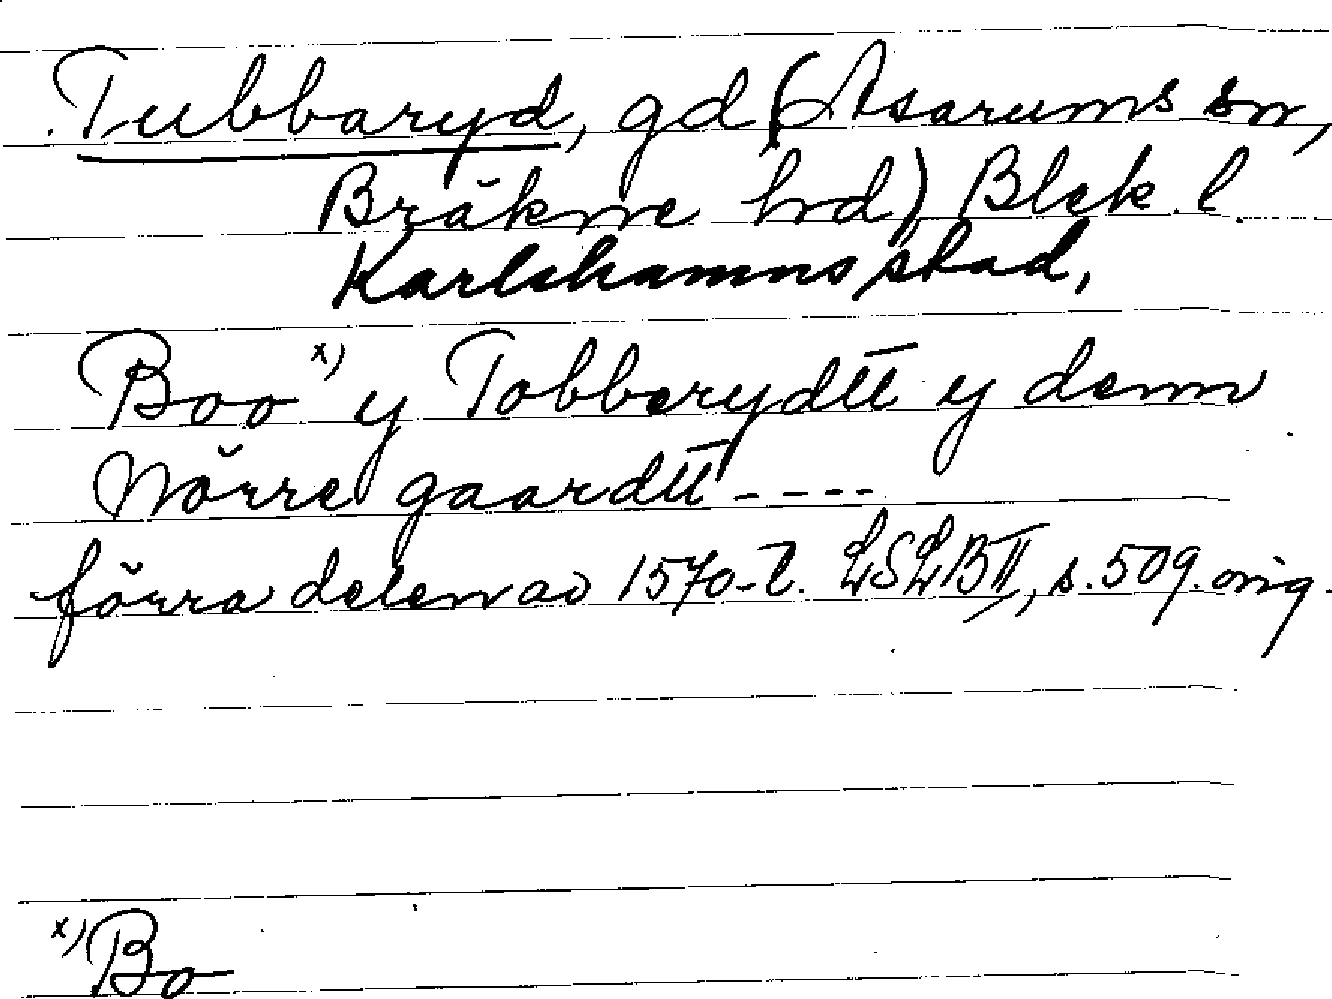 Tubbaryd, gd (Asarums sn,
Bräkne hrd) Blek. l.
Karlshamns stad,
Boo x) y Tobberydtt y denn
Nörre gaardtt ----
förra delen av 1570-t. LSLB II, s. 509. orig.
x) Bo